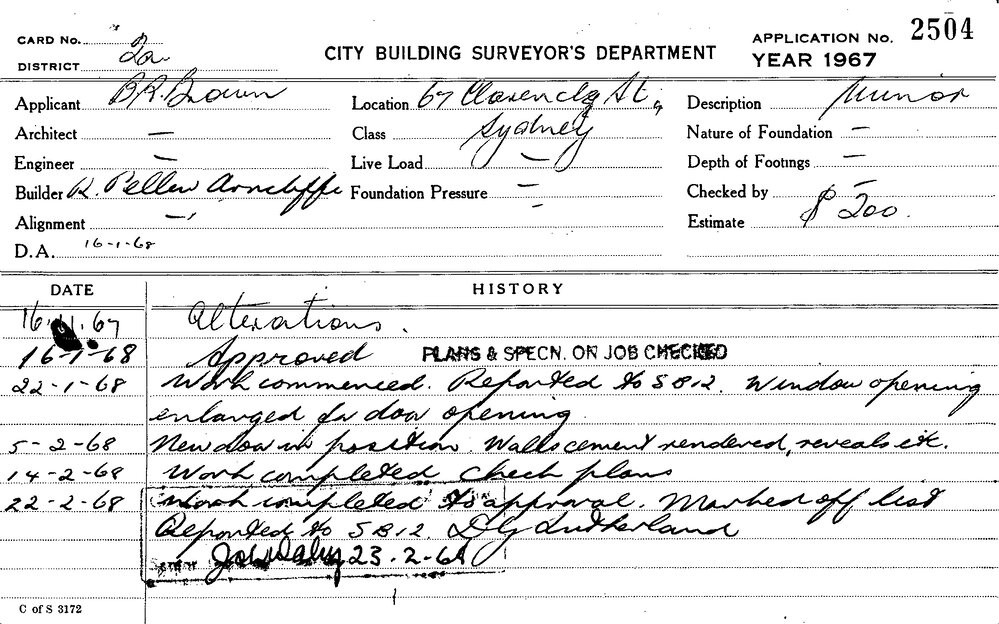 CARD No. 2
DISTRICT 2a
CITY BUILDING SURVEYOR'S DEPARTMENT
APPLICATION No. 2504
YEAR 1967
Applicant B.R. Brown
Location 67 Clarence St.,
Description Minor
Architect —
Class Sydney
Nature of Foundation —
Engineer —
Live Load —
Depth of Footings —
Builder R. Pellew Arncliffe
Foundation Pressure —
Checked by —
Alignment —
Estimate $ 200.
D.A. 16-1-68
DATE HISTORY
16.11.67 Alterations.
16-1-68 Approved PLANS & SPECN. ON JOB CHECKED
22-1-68 Work commenced. Reported to SB12. Window opening
enlarged for door opening
5-2-68 New door in position. Walls cement rendered, reveals etc.
14-2-68 Work completed check plans
22-2-68 Work completed to approval. Marked off list
Reported to SB12. D G Sutherland
23.2-68
C of S 3172